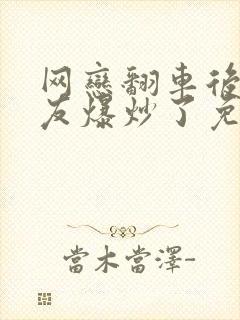 网戀翻車後
友爆炒了免
當木當澤-